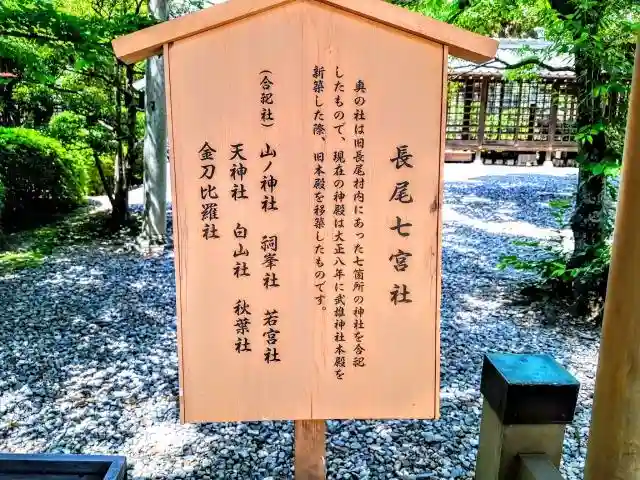 長尾七宮社
奥の社は旧長尾村内にあった七箇所の神社を合祀
したもので、現在の神殿は大正八年に武雄神社本殿を
新築した際、旧本殿を移築したものです。
(合祀社) 山ノ神社 祠峯社 若宮社
天神社 白山社 秋葉社
金刀比羅社